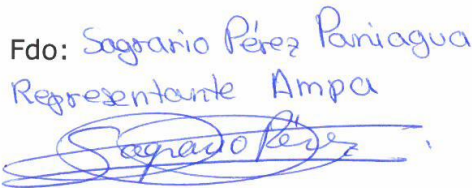 Fdo: Sagrario Pérez Paniagua
Representante Ampa
Sagrario Pérez